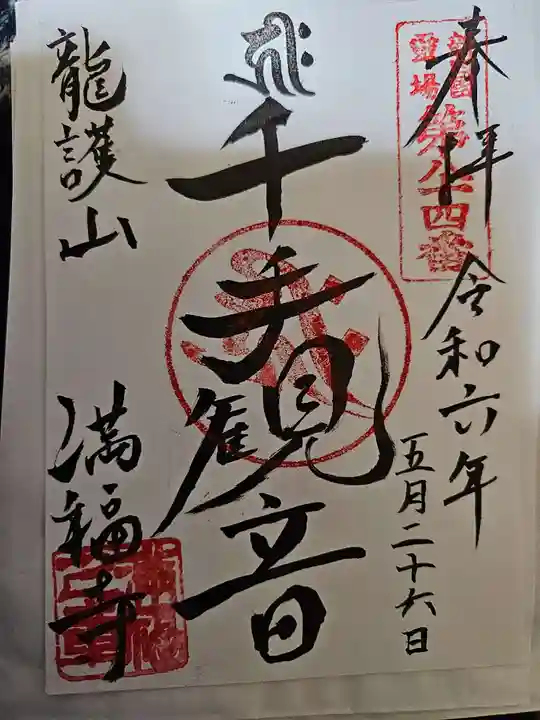 奉拝
第廿四番
霊場
令和六年
五月二十六日
千手観音
龍護山
満福寺